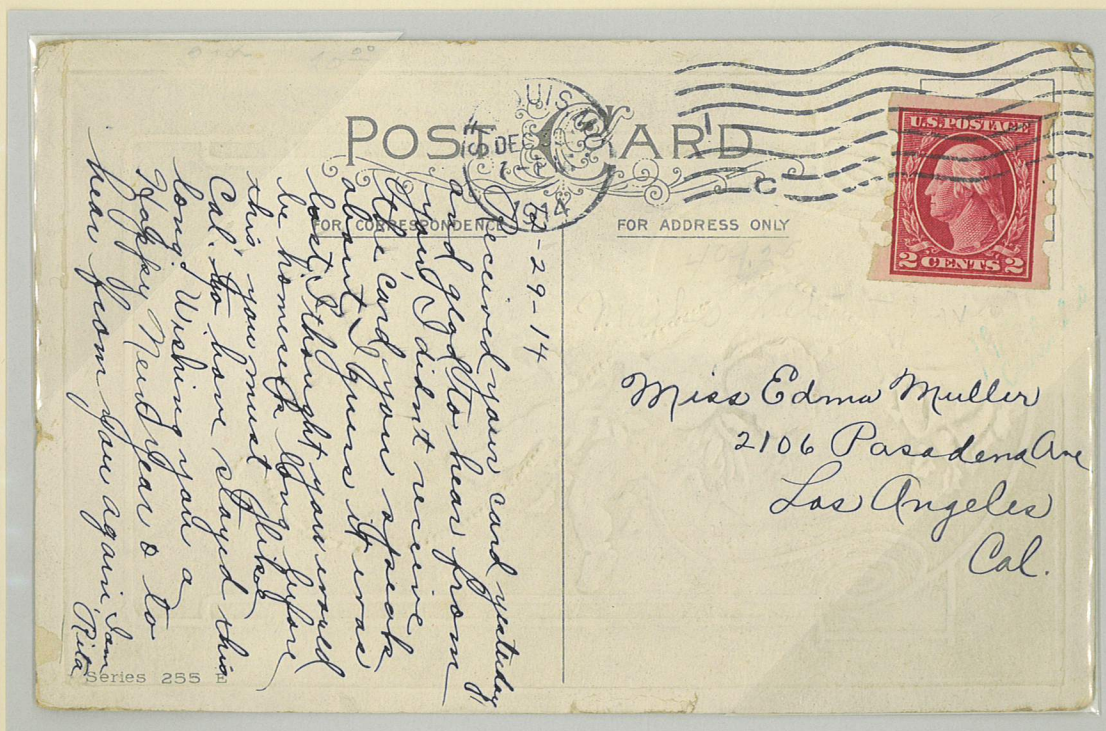 POST CARD
ST. LOUIS MO
DEC
1914
U.S. POSTAGE
2 CENTS 2
FOR CORRESPONDENCE
FOR ADDRESS ONLY
12-29-14
Received your card yesterday
and glad to hear from
you, I didnt receive
the card you speak
about, I guess it was
lost, I thought you would
be home long before
this, you must like
Cal. to have stayed this
long. Wishing you a
Happy New Year & to
hear from you again, I am
Rita
Miss Edma Muller
2106 Pasadena Ave
Los Angeles
Cal.
Series 255 E